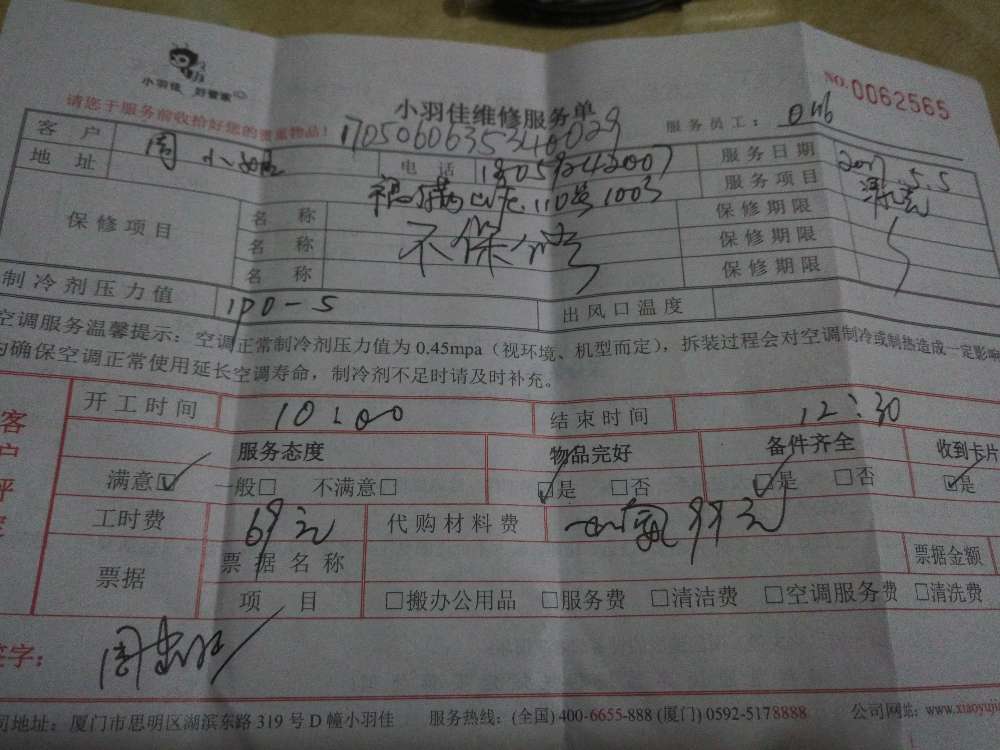 小羽佳 好管家
NO. 0062565
请您于服务前收拾好您的贵重物品!
小羽佳维修服务单
服务员工: 046
客户 周 电话 服务日期 2017.5.5
地址 110号1003 服务项目
保修项目 名称 不保 保修期限
名称 保修期限
名称 保修期限
制冷剂压力值 出风口温度
空调服务温馨提示: 空调正常制冷剂压力值为 0.45mpa (视环境、机型而定), 拆装过程会对空调制冷或制热造成一定影响
为确保空调正常使用延长空调寿命, 制冷剂不足时请及时补充。
开工时间 10:00 结束时间 12:30
服务态度 物品完好 备件齐全 收到卡片
满意☑ 一般□ 不满意□ ☑是 □否 ☑是 □否 ☑是
工时费 69元 代购材料费 99元
票据 票据名称 票据金额
项目 □搬办公用品 □服务费 □清洁费 □空调服务费 □清洗费
签字: 周
司地址: 厦门市思明区湖滨东路 319 号 D 幢小羽佳 服务热线: (全国) 400-6655-888 (厦门) 0592-5178888 公司网址: www.xiaoyuji